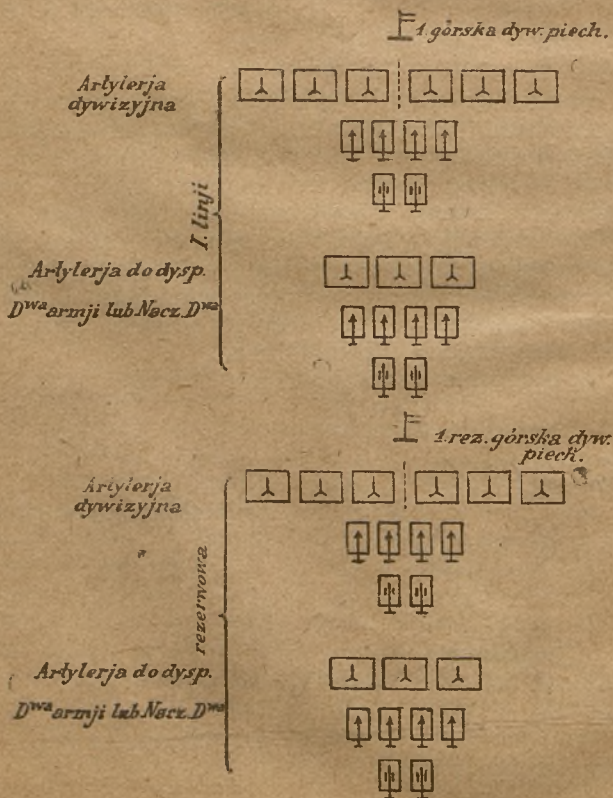 1 górska dyw. piech.
Artylerja
dywizyjna
I. linji
Artylerja do dysp.
Dwa armji lub Nacz. Dwa
1. rez. górska dyw.
piech.
Artylerja
dywizyjna
rezerwowa
Artylerja do dysp.
Dwa armji lub Nacz. Dwa